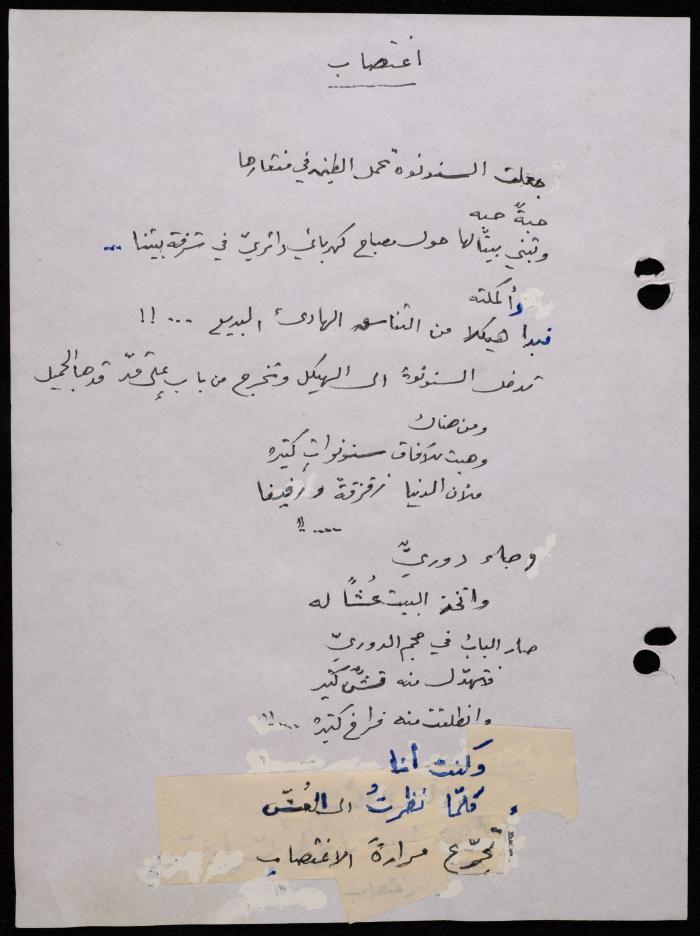 اغتصاب
جعلت السنونوة تحمل الطين في منقارها
حبةً حبه
وتبني بيتًا لها حول مصباح كهربائي دائريّ في شرفة بيتنا ...
وأكملته
فبدا هيكلا من التناسق الهادئ البديع ... !!
تدخل السنونوة الى الهيكل وتخرج من باب على قدّ قدها الجميل
ومن هناك
وهبت للآفاق سنونواتٍ كثيره
ملأن الدنيا زقزقة ورفيفا
.... !!
وجاء دوريّ
واتخذ البيت عُشًّا له
صار البابُ في حجم الدوريّ
فتهدّل منه قشّ كثير
وانطلقت منه فراخ كثيره .... !!
وكنت أنا
كلّما نظرتُ الى العُشّ
تجرّع مرارةَ الاغتصاب
الاغتصاب !!